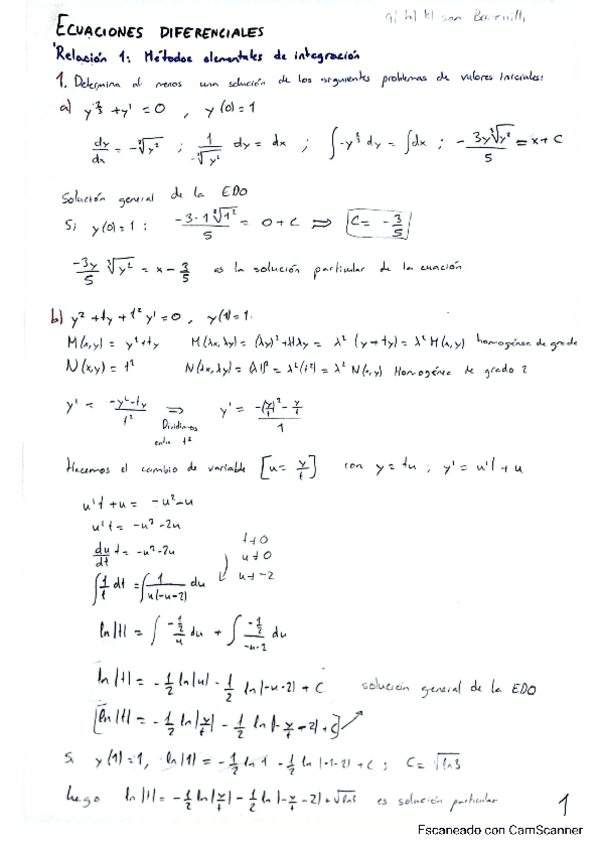 ECUACIONES DIFERENCIALES
Relación 1: Métodos elementales de integración
1. Determina al menos una solución de los siguientes problemas de valores iniciales:
a) y^{2/3} + y' = 0 , y(0) = 1
dy/dx = -∛y² ; 1/(-∛y²) dy = dx ; ∫ dy = ∫dx ; -3y∛y²/5 = x + C
Solución general de la EDO
Si y(0)=1 : -3·1∛1²/5 = 0 + C ⟹ C = -3/5
-3y/5 ∛y² = x - 3/5 es la solución particular de la ecuación
b) y² + ty + t² y' = 0 , y(1) = 1.
M(x,y) = y² + ty M(λx, λy) = (λy)² + λtλy = λ² (y + ty) = λ² M(x,y) homogénea de grado
N(x,y) = t² N(λx, λy) = = λ²(t²) = λ² N(x,y) Homogénea de grado 2
y' = (-y² - ty)/t² ⟹ y' = (-(y/t)² - y/t)/1
Dividimos
entre t²
Hacemos el cambio de variable [u = y/t] con y = tu ; y' = u't + u
u't + u = -u² - u
u't = -u² - 2u
du/dt t = -u² - 2u
t ≠ 0
u ≠ 0
u ≠ -2
∫ 1/t dt = ∫ 1/(u(-u-2)) du
ln|t| = ∫ (-1/2)/u du + ∫ (-1/2)/(-u-2) du
ln|t| = -1/2 ln|u| - 1/2 ln|-u-2| + C solución general de la EDO
[ln|t| = -1/2 ln|y/t| - 1/2 ln|-y/t - 2| + C]
Si y(1)=1, ln|1| = -1/2 ln 1 - 1/2 ln|-1-2| + C ; C = √ln3
luego ln|t| = -1/2 ln|y/t| - 1/2 ln|-y/t - 2| + √ln3 es solución particular
1
Escaneado con CamScanner